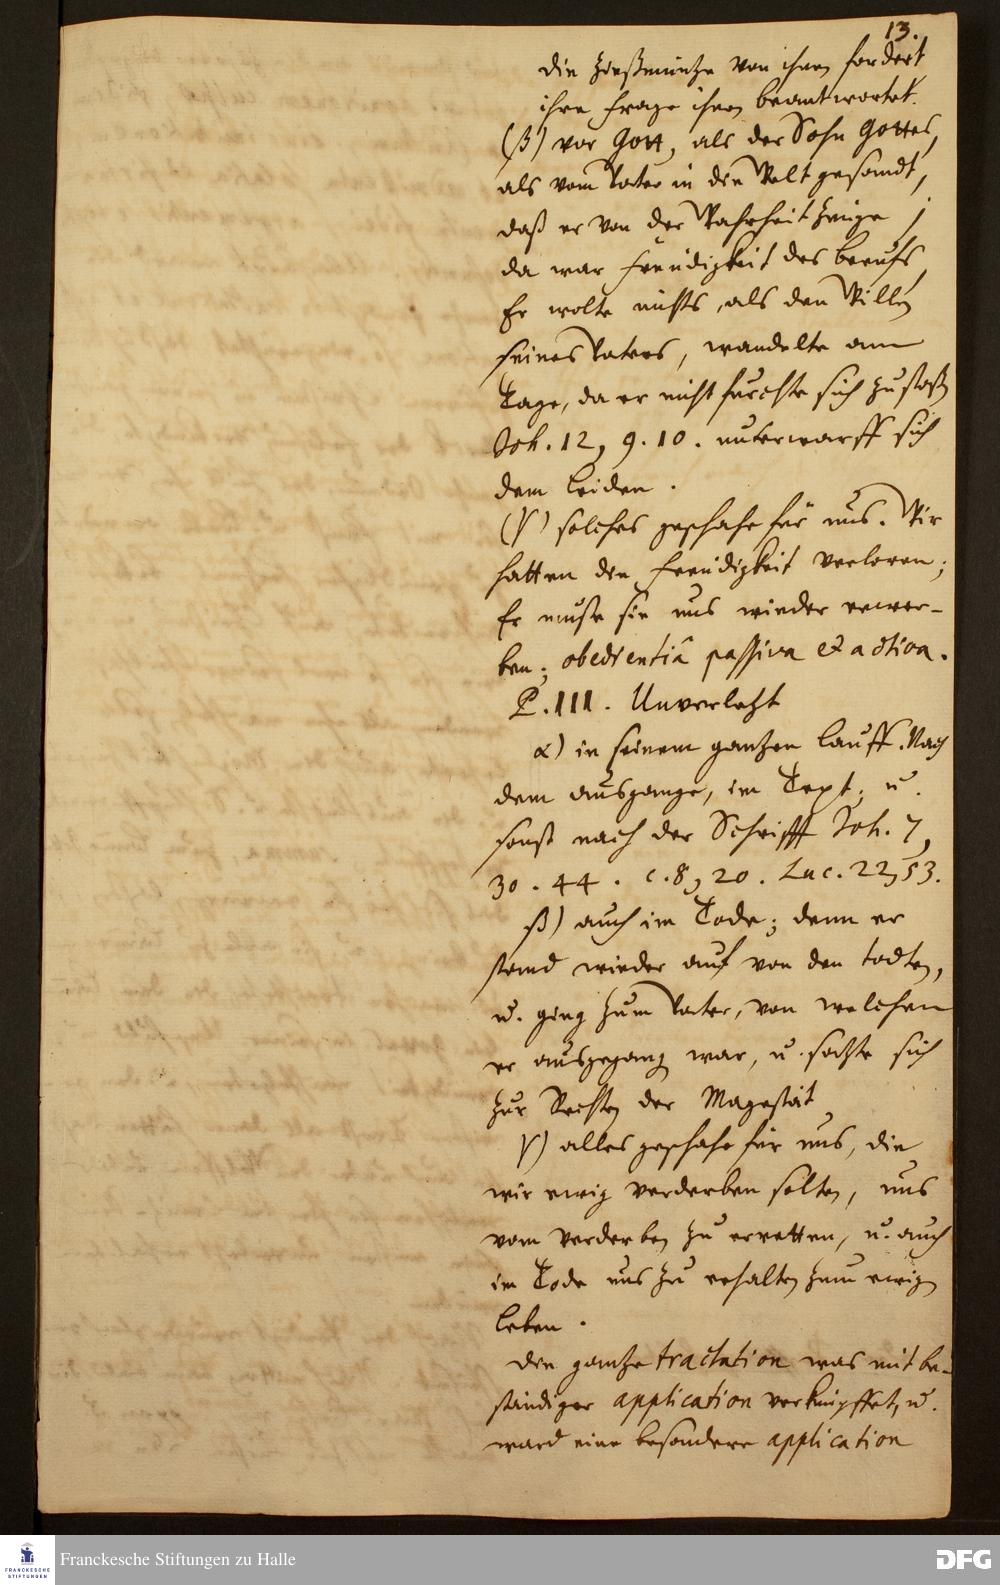 13.
die Zinßmüntze von ihnen fordert
ihre frage ihnen beantwortet.
(ß) vor Gott, als der Sohn Gottes,
als vom Vater in die Welt gesandt,
daß er von der Wahrheit zeuge;
da war freudigkeit des berufs,
Er wolte nichts, als den Willen
seines Vaters, wandelte am
Tage, da er nicht furchte sich zustoßen
Joh. 12, 9. 10. unterwarff sich
dem leiden.
(γ) solches geschahe für uns. Wir
hatten die freudigkeit verloren;
Er muste sie uns wieder erwer-
ben; obedientiâ passiva et activa.
P. III. Unverletzt
α) in seinem gantzen lauff. Nach
dem ausgange, im Text; u.
sonst nach der Schrifft Joh. 7,
30. 44. c. 8, 20. Luc. 22, 53.
ß) auch im Tode; denn er
stand wieder auf von den todten,
u. ging zum Vater, von welchem
er ausgegangen war, u. satzte sich
zur Rechten der Magestät
γ) alles geschahe für uns, die
wir ewig verderben solten, uns
vom verderben zu erretten, u. auch
im Tode uns zu erhalten zum ewigen
leben.
Die gantze tractation was mit be-
ständiger application verknüpffet, u.
ward eine besondere application
Franckesche Stiftungen zu Halle
FRANCKESCHE
STIFTUNGEN
DFG